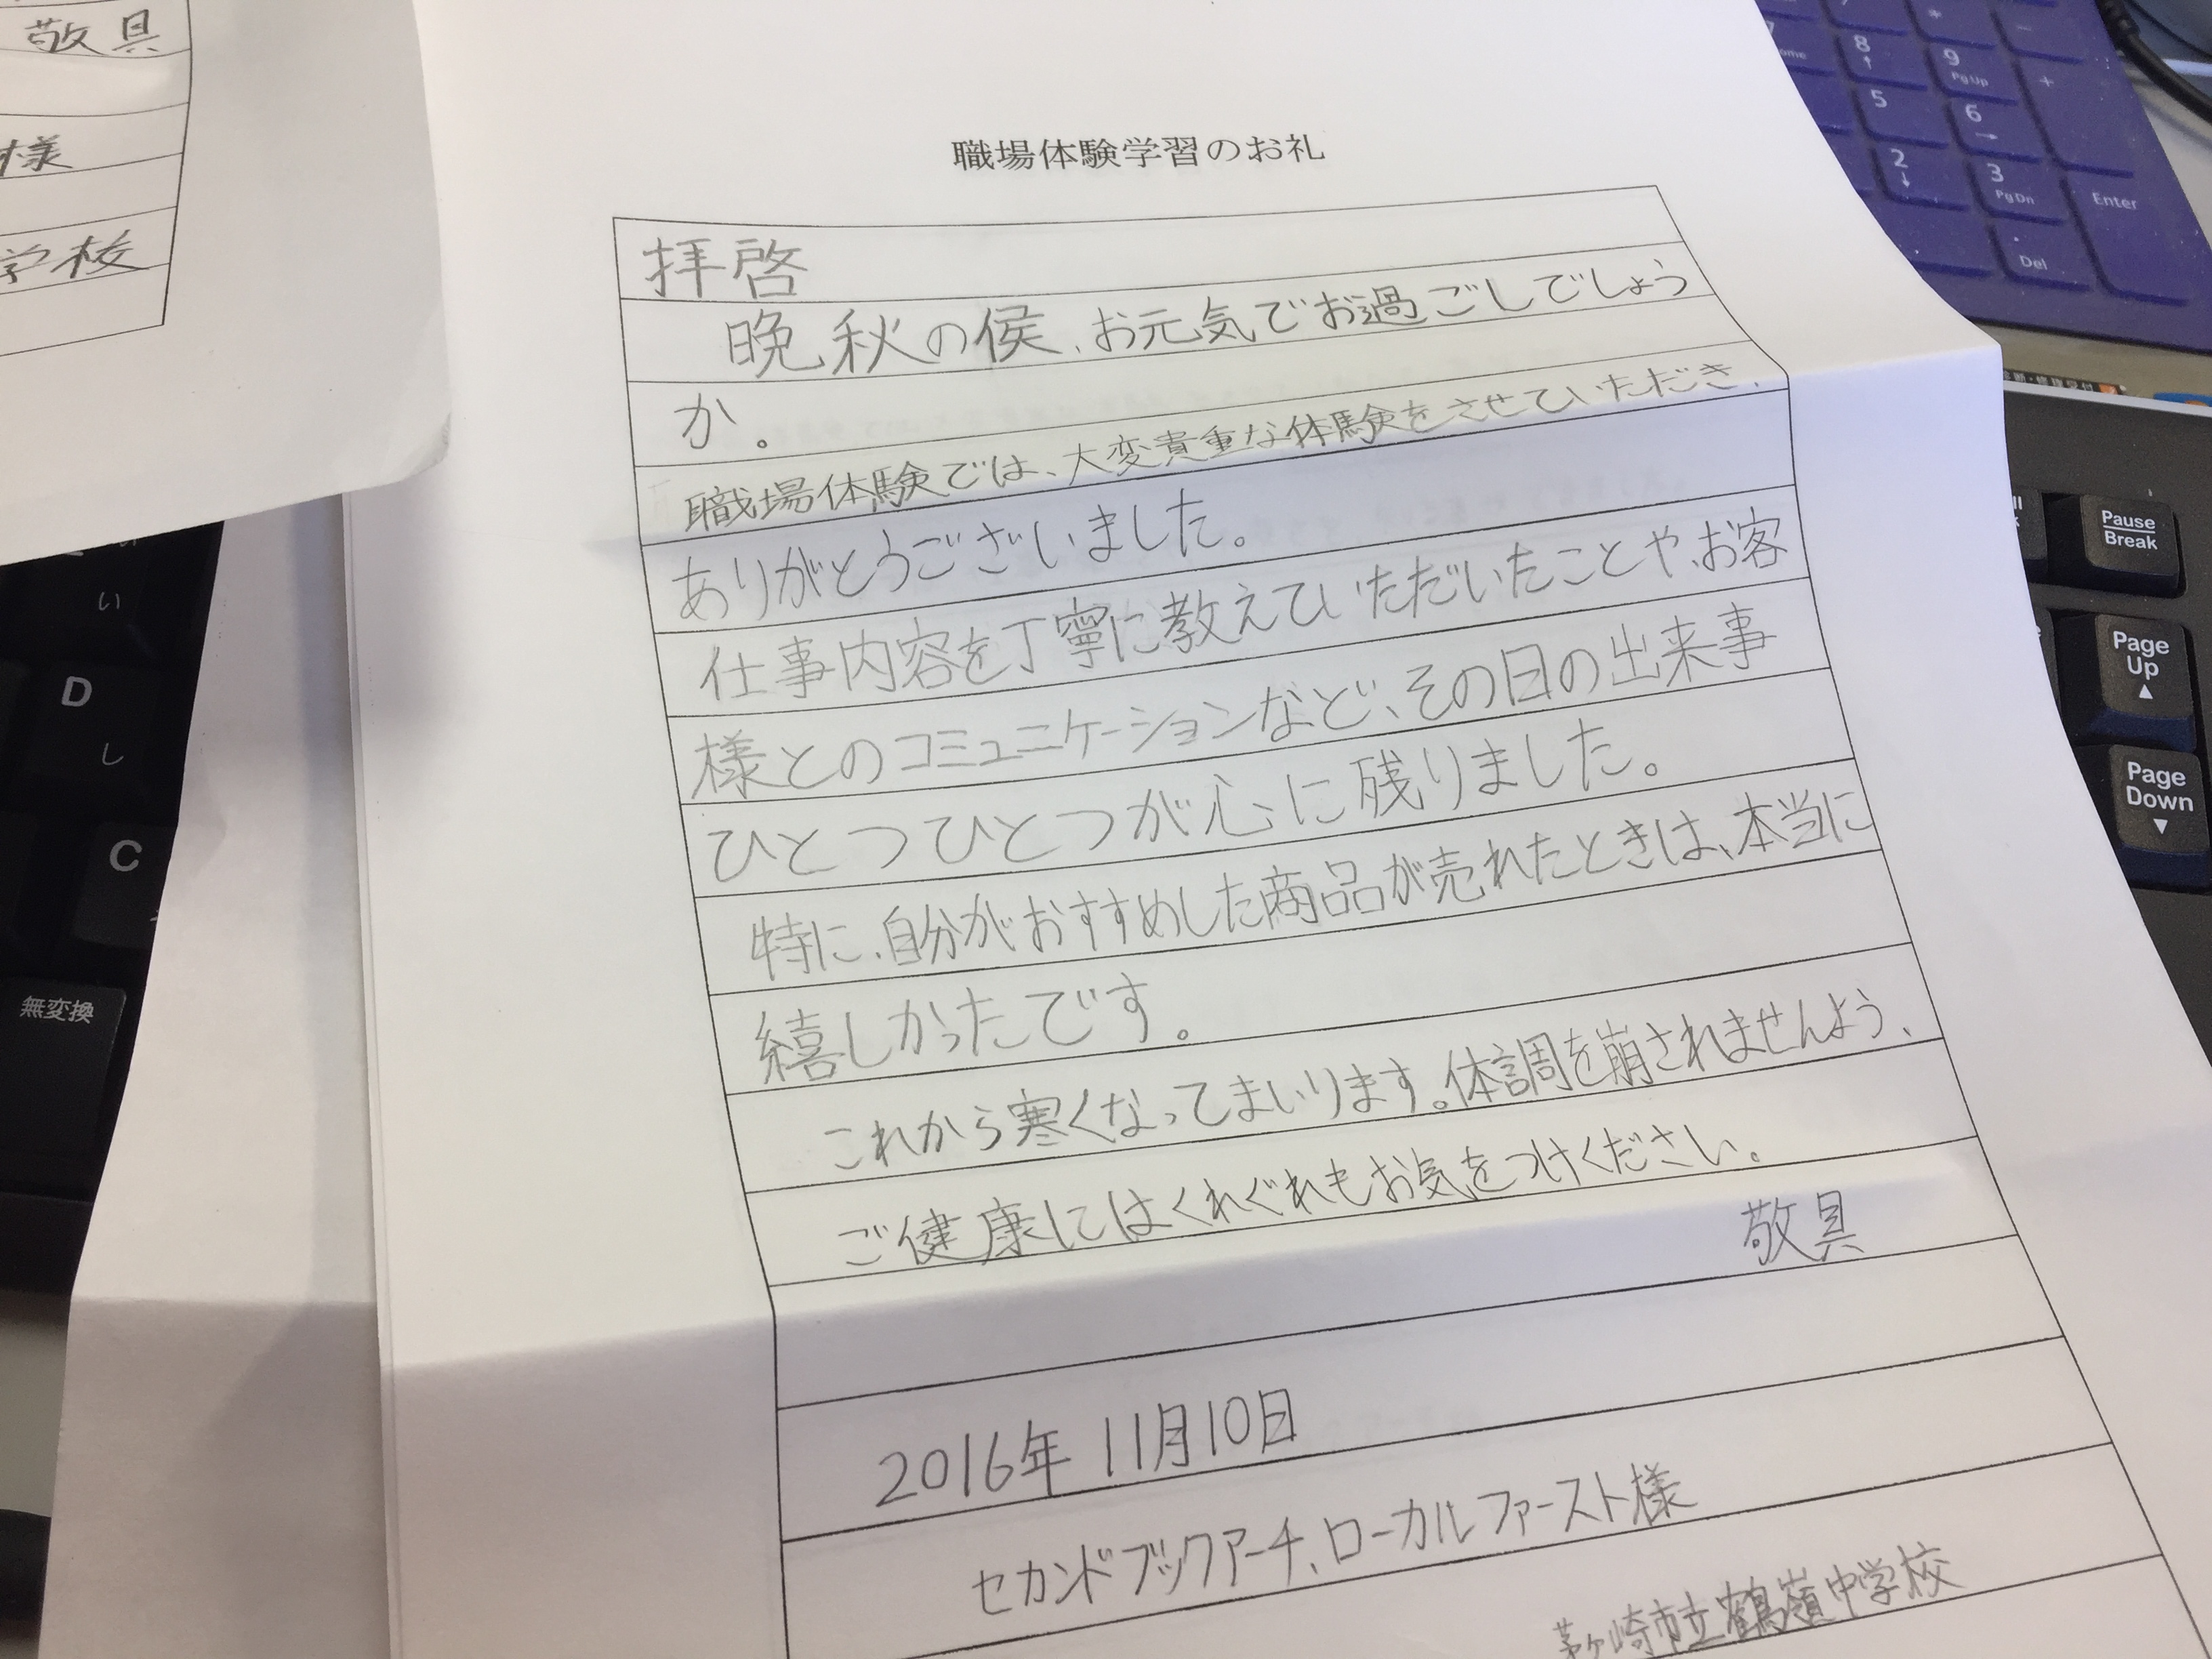 敬具
様
学校
職場体験学習のお礼
拝啓
晩秋の侯、お元気でお過ごしでしょう
か。
職場体験では、大変貴重な体験をさせていただき、
ありがとうございました。
仕事内容を丁寧に教えていただいたことや、お客
様とのコミュニケーションなど、その日の出来事
ひとつひとつが心に残りました。
特に、自分がおすすめした商品が売れたときは、本当に
嬉しかったです。
これから寒くなってまいります。体調を崩されませんよう、
ご健康にはくれぐれもお気をつけください。
敬具
2016年 11月10日
セカンドブックアーチ、ローカルファースト様
茅ヶ崎市立鶴嶺中学校
8
9
PgUp
+
5
6
2
3
PgDn
Enter
.
Del
Pause
Break
Page
Up
Page
Down
い
D
し
C
無変換